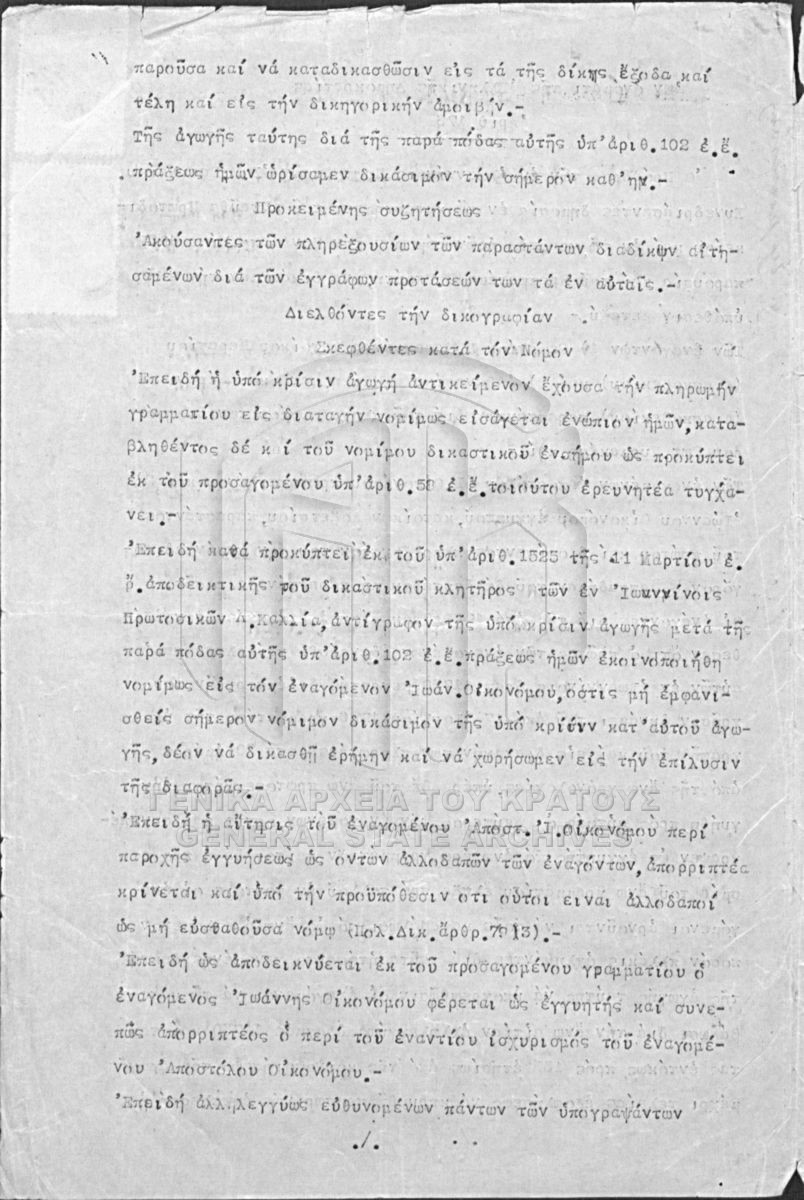 παροῦσα καί νά καταδικασθῶσιν εἰς τά τῆς δίκης ἔξοδα καί
τέλη καί εἰς τήν δικηγορικήν ἀμοιβήν.-
Τῆς ἀγωγῆς ταύτης διά τῆς παρά πόδας αὐτῆς ὑπ'ἀριθ.102 ἐ.ἔ.
πράξεως ἡμῶν ὡρίσαμεν δικάσιμον τήν σήμερον καθ'ην.-
Προκειμένης συζητήσεως
Ἀκούσαντες τῶν πληρεξουσίων τῶν παραστάντων διαδίκων αἰτη-
σαμένων διά τῶν ἐγγράφων προτάσεών των τά ἐν αὐταῖς.-
Διελθόντες τήν δικογραφίαν
Σκεφθέντες κατά τόν Νόμον
Ἐπειδή ἡ ὑπό κρίσιν ἀγωγή ἀντικείμενον ἔχουσα τήν πληρωμήν
γραμματίου εἰς διαταγήν νομίμως εἰσάγεται ἐνώπιον ἡμῶν,κατα-
βληθέντος δέ κ ί τοῦ νομίμου δικαστικοῦ ἐνσήμου ὡς προκύπτει
ἐκ τοῦ προσαγομένου ὑπ'ἀριθ.58 ἐ.ἔ.τοιούτου ἐρευνητέα τυγχά-
νει.-
Ἐπειδή καθά προκύπτει ἐκ τοῦ ὑπ'ἀριθ.1525 τῆς 11 Μαρτίου ἐ.
ἔ.ἀποδεικτικῆς τοῦ δικαστικοῦ κλητῆρος τῶν ἐν Ἰωαννίνοις
Πρωτοδικῶν Α.Καλλία,ἀντίγραφον τῆς ὑπό κρίσιν ἀγωγῆς μετά τῆς
παρά πόδας αὐτῆς ὑπ'ἀριθ.102 ἐ.ἔ.πράξεως ἡμῶν ἐκοινοποιήθη
νομίμως εἰς τόν ἐναγόμενον Ἰωάν.Οἰκονόμου,ὅστις μή ἐμφανι-
σθείς σήμερον νόμιμον δικάσιμον τῆς ὑπό κρίσιν κατ'αὐτοῦ ἀγω-
γῆς,δέον νά δικασθῇ ἐρήμην καί νά χωρήσωμεν εἰς τήν ἐπίλυσιν
τῆς διαφορᾶς.-
Ἐπειδή ἡ αἴτησις τοῦ ἐναγομένου Ἀποστ. Ἰ.Οἰκονόμου περί
παροχῆς ἐγγυήσεως ὡς ὄντων ἀλλοδαπῶν τῶν ἐναγόντων,ἀπορριπτέα
κρίνεται καί ὑπό τήν προϋπόθεσιν οτι οὗτοι ειναι ἀλλοδαποί
ὡς μή εὐσταθοῦσα νόμῳ (Πολ.Δικ.ἄρθρ.79(3).-
Ἐπειδή ὡς ἀποδεικνύεται ἐκ τοῦ προσαγομένου γραμματίου ὁ
ἐναγόμενος Ἰωάννης Οἰκονόμου φέρεται ὡς ἐγγυητής καί συνε-
πῶς ἀπορριπτέος ὁ περί τοῦ ἐναντίου ἰσχυρισμός τοῦ ἐναγομέ-
νου Ἀποστόλου Οἰκονόμου.-
Ἐπειδή ἀλληλεγγύως εὐθυνομένων πάντων τῶν ὑπογραψάντων
./.
ΓΕΝΙΚΑ ΑΡΧΕΙΑ ΤΟΥ ΚΡΑΤΟΥΣ
GENERAL STATE ARCHIVES